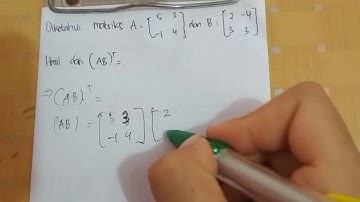 Diketahui matriks A = [5 3 -1 4] dan B = [2 -4 3 3]
Hasil dari (AB)ᵀ = .
⇒ (AB)ᵀ =
(AB) = [5 3 -1 4] [2